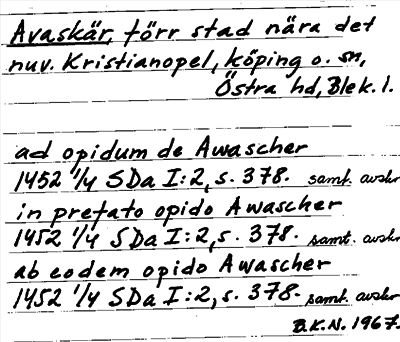 Avaskär, förr stad nära det
nuv. Kristianopel, köping o. sn,
Östra hd, Blek. l.
ad opidum de Awascher
1452 1/4 SDa I:2, s. 378. samt. avskr
in prefato opido Awascher
1452 1/4 SDa I:2, s. 378. samt. avskr
ab eodem opido Awascher
1452 1/4 SDa I:2, s. 378. samt. avskr
B.K.N. 1967.